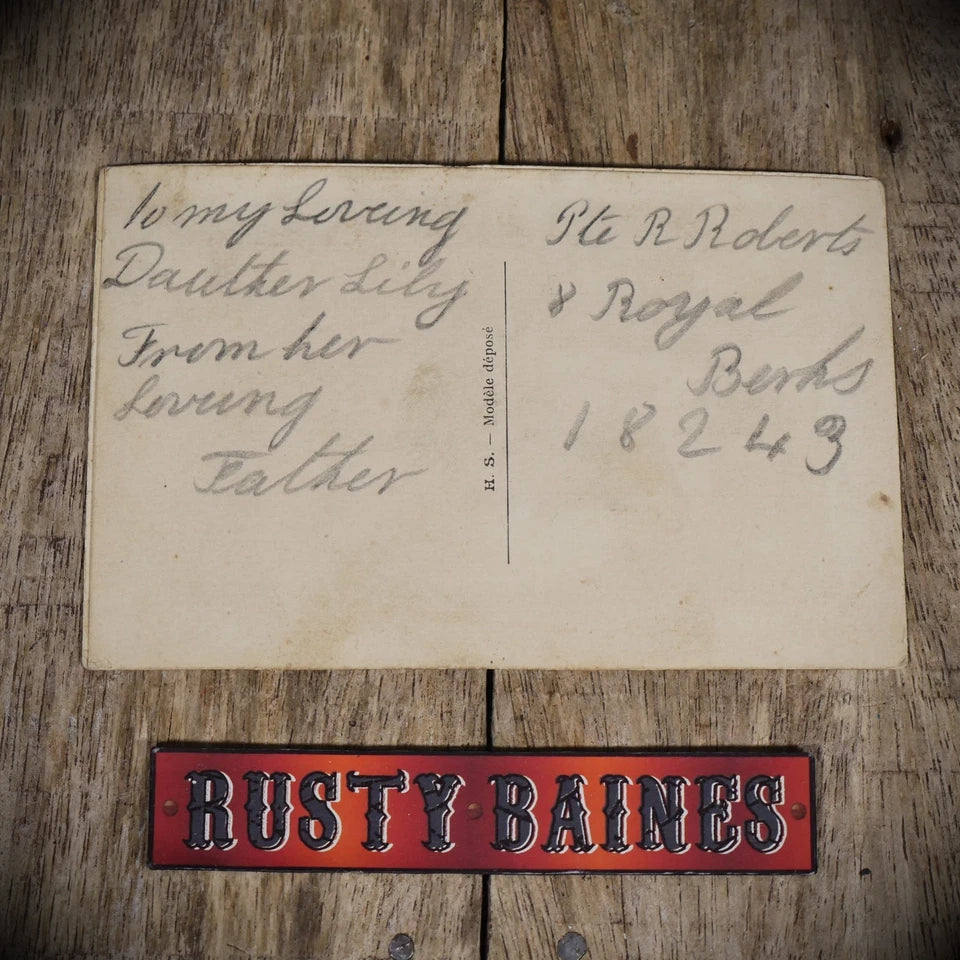 To my Loveing
Daulther Lily
From her
Loveing
Father
H. S. – Modèle déposé
Pte R Roberts
8 Royal
Berks
18243
RUSTY BAINES